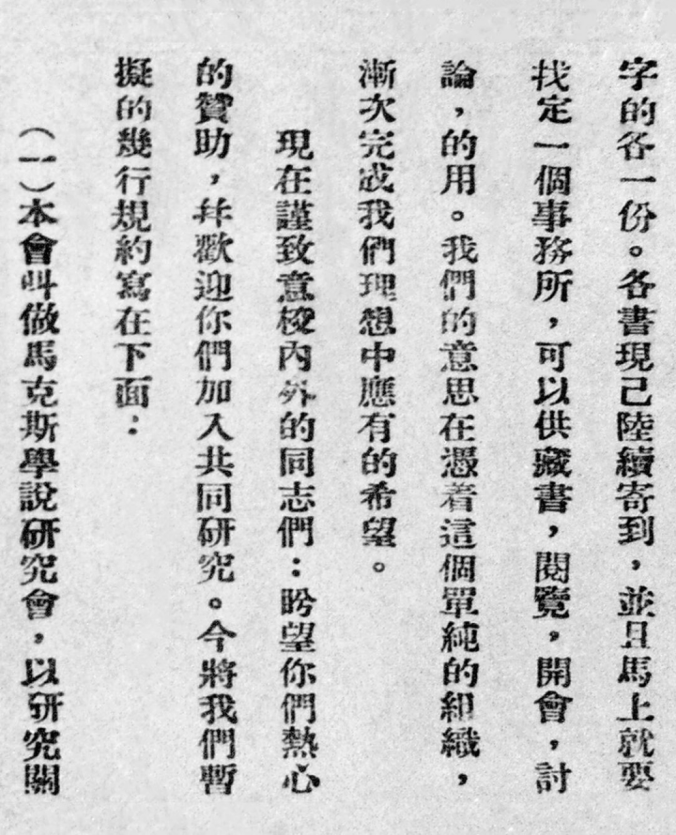 字的各一份。各書現已陸續寄到，並且馬上就要
找定一個事務所，可以供藏書，閱覽，開會，討
論，的用。我們的意思在憑着這個單純的組織，
漸次完成我們理想中應有的希望。
現在謹致意校內外的同志們：盼望你們熱心
的贊助，幷歡迎你們加入共同研究。今將我們暫
擬的幾行規約寫在下面：
（一）本會叫做馬克斯學說研究會，以研究關